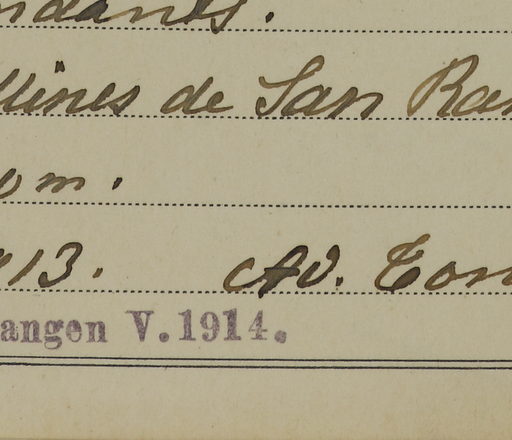 ndants.
llines de San Ram
om.
913. Ad. Ton
angen V. 1914.